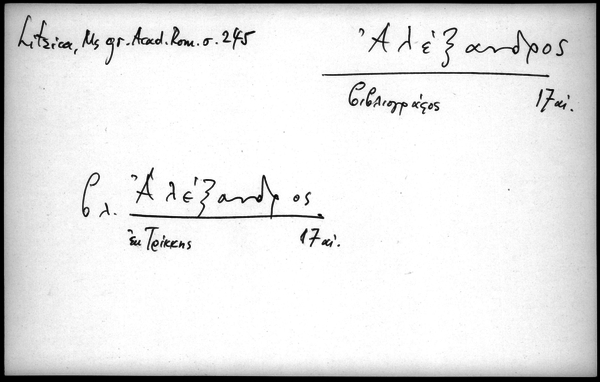 Litzica, Ms gr. Acad. Rom. σ. 245
Ἀλέξανδρος
βιβλιογράφος 17 αἰ.
βλ. Ἀλέξανδρος
ἐκ Τρίκκης 17 αἰ.